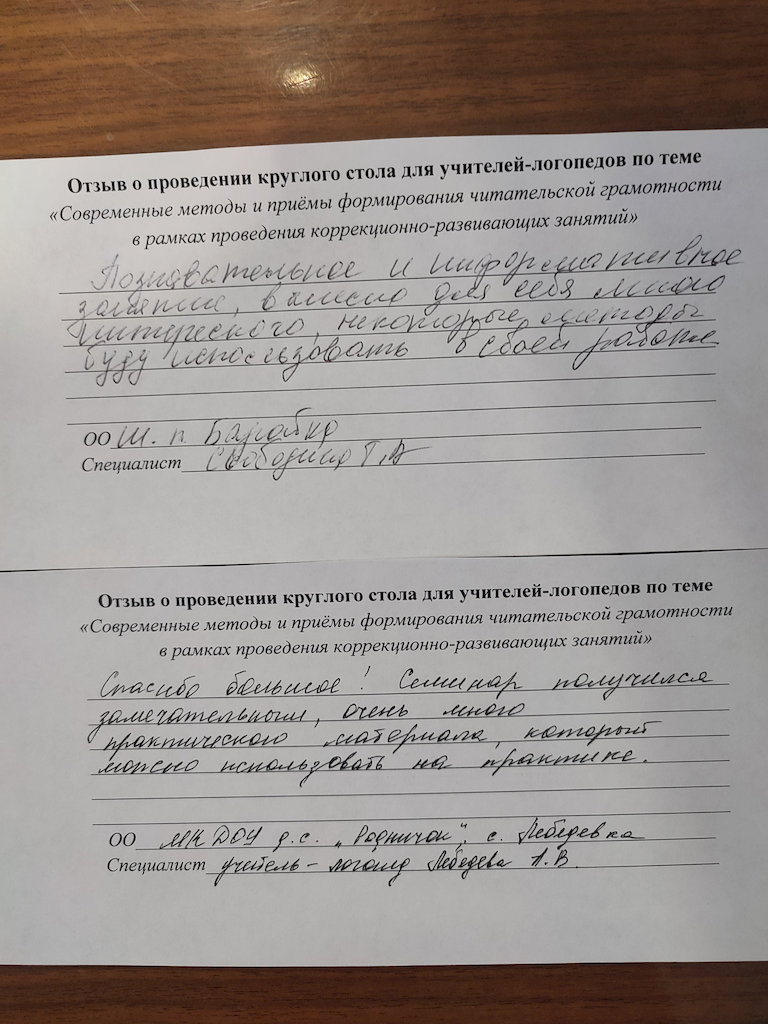 Отзыв о проведении круглого стола для учителей-логопедов по теме
«Современные методы и приёмы формирования читательской грамотности
в рамках проведения коррекционно-развивающих занятий»
Познавательное и информативное
занятие, вынесла для себя много
интересного, некоторые методы
буду использовать в своей работе
ОО Ш. п.
Специалист Слободина Т.А
Отзыв о проведении круглого стола для учителей-логопедов по теме
«Современные методы и приёмы формирования читательской грамотности
в рамках проведения коррекционно-развивающих занятий»
Спасибо большое! Семинар получился
замечательным, очень много
практического материала, который
можно использовать на практике.
ОО МК ДОУ д.с. „Родничок", с. Лебедевка
Специалист учитель-логопед Лебедева А.В.